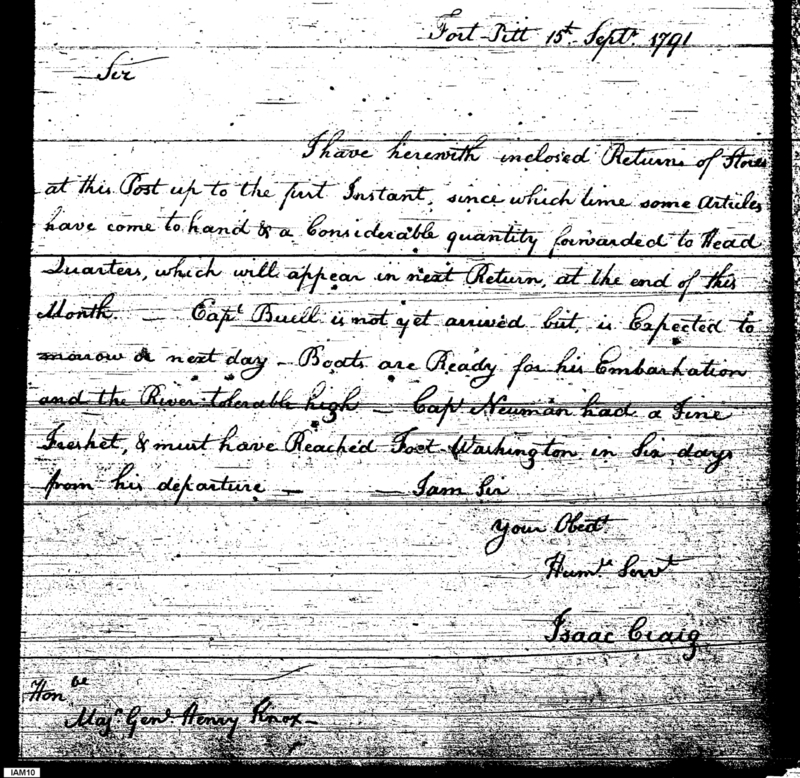 Fort Pitt 15th Septr 1791
Sir
I have herewith inclosed Returns of Stores
at this Post up to the first Instant, since which time some Articles
have come to hand & a Considerable quantity forwarded to Head
Quarters, which will appear in next Return, at the end of this
Month. — Capt Buell is not yet arrived but, is Expected to
morow or next day – Boats are Ready for his Embarkation
and the River tolerable high — Capt Neuman had a Fine
Freshet, & must have Reached Fort Washington in Six days
from his departure — — I am Sir
your Obedt
Humle Servt
Isaac Craig
Honble
Majr Genl Henry Knox –
IAM10